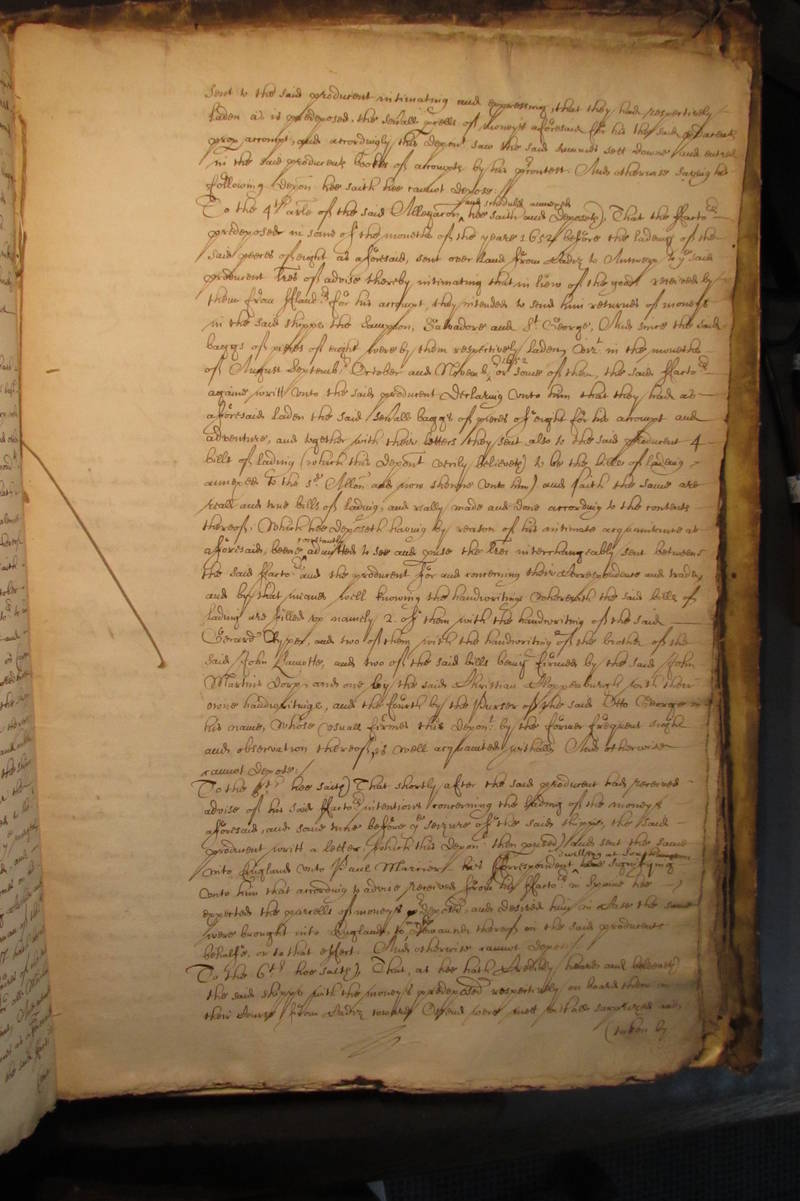 sent to the said producent intimating and expressing, that they had respectively
laden as is predeposed, the severall parcells of moneys aforesaid for his the said producents
prop accompt, and accordingly this deponent saw the said summes sett downe and entred
in the said producents bookes of accompts by his pronotest. And otherwise saving his
following deposition hee saith hee cannot depose.
To the 4th arle of the said Allegacon and schedules annexed hee saith and deposeth, That the ffactors
predeposed in some of the moneths of the yeare 1652 before the lading of the
said peeces of eight as aforesaid, sent over land from Cadiz to Antwerp to ye said
producent lres of advise thereby intimating that in liew of the goods received by
them from ffland:rs for his accompt, they intended to send him returnes of moneys
in the said shipps the Sampson, Salvadore and St. George, And since the said
baggs of peeces of eight were by them respectively laden, vizt. in the moneths
of August, Septemb:r October and Novemb:r 1652 or some of them, the said ffactors
againe writt unto the said producent declaring unto him that they had as
aforesaid laden the said severall baggs of peeces of eight for his accompt and
adventure, and together with their letters they sent also to the said producent 4
bills of lading (which this deponent verily believeth) to be the bills of lading
annexed to the sd. Allon and now shewne unto him) and saith the same are
reall and true bills of lading, and really made and done according to the contents
thereof. Which hee deposeth having by reason of his intimate acquaintance as
aforesaid, beene constantly admitted to see and peruse the lres interchangeably sent betweene
the said ffactors and the producent for and concerning their correspondence and trading
and by that meanes well knowing the handwritings wherewith the said bills of
lading are filled up namely 2. of them with the handwriting of the said
Gerard Cypes, and two of them with the handwriting of the brother of the
said John Lamotte, and two of the said bills being firmed by the said John
Martins Dorp, and one by the said Christian Cloppenburgh with their
owne handwritings, and the fourth by the Purser of the said Otto George in
his name, Whose usuall firmes this depont. by the former frequent sight
and observation thereof, is well acquainted withall, And otherwise
cannot depose./
To the 5th hee saith That shortly after the said producent had received
advise of his said ffactors intentions concerning the lading of the moneys
aforesaid, and some time before ye seizure of the said shipps, the said
producent writt a letter (which this deponent then perused) and sent the same
into England unto Paul Marrier his correspondent dwelling at London signifying
unto him that according to advise received from his ffactors in Spaine hee
expected the parcells of moneys predeposed, and desired him in case the same
were brought into England, to make demaund thereof on the said producents
behalfe, or to that effect. And otherwise cannot depose/
To the 6th hee saith, That, as hee hath credibly heard and beleeveth
the said shipps with the moneys predeposed respectively on board them in
their course from Cadiz towards Ostend were mett withall surprized and
(taken by